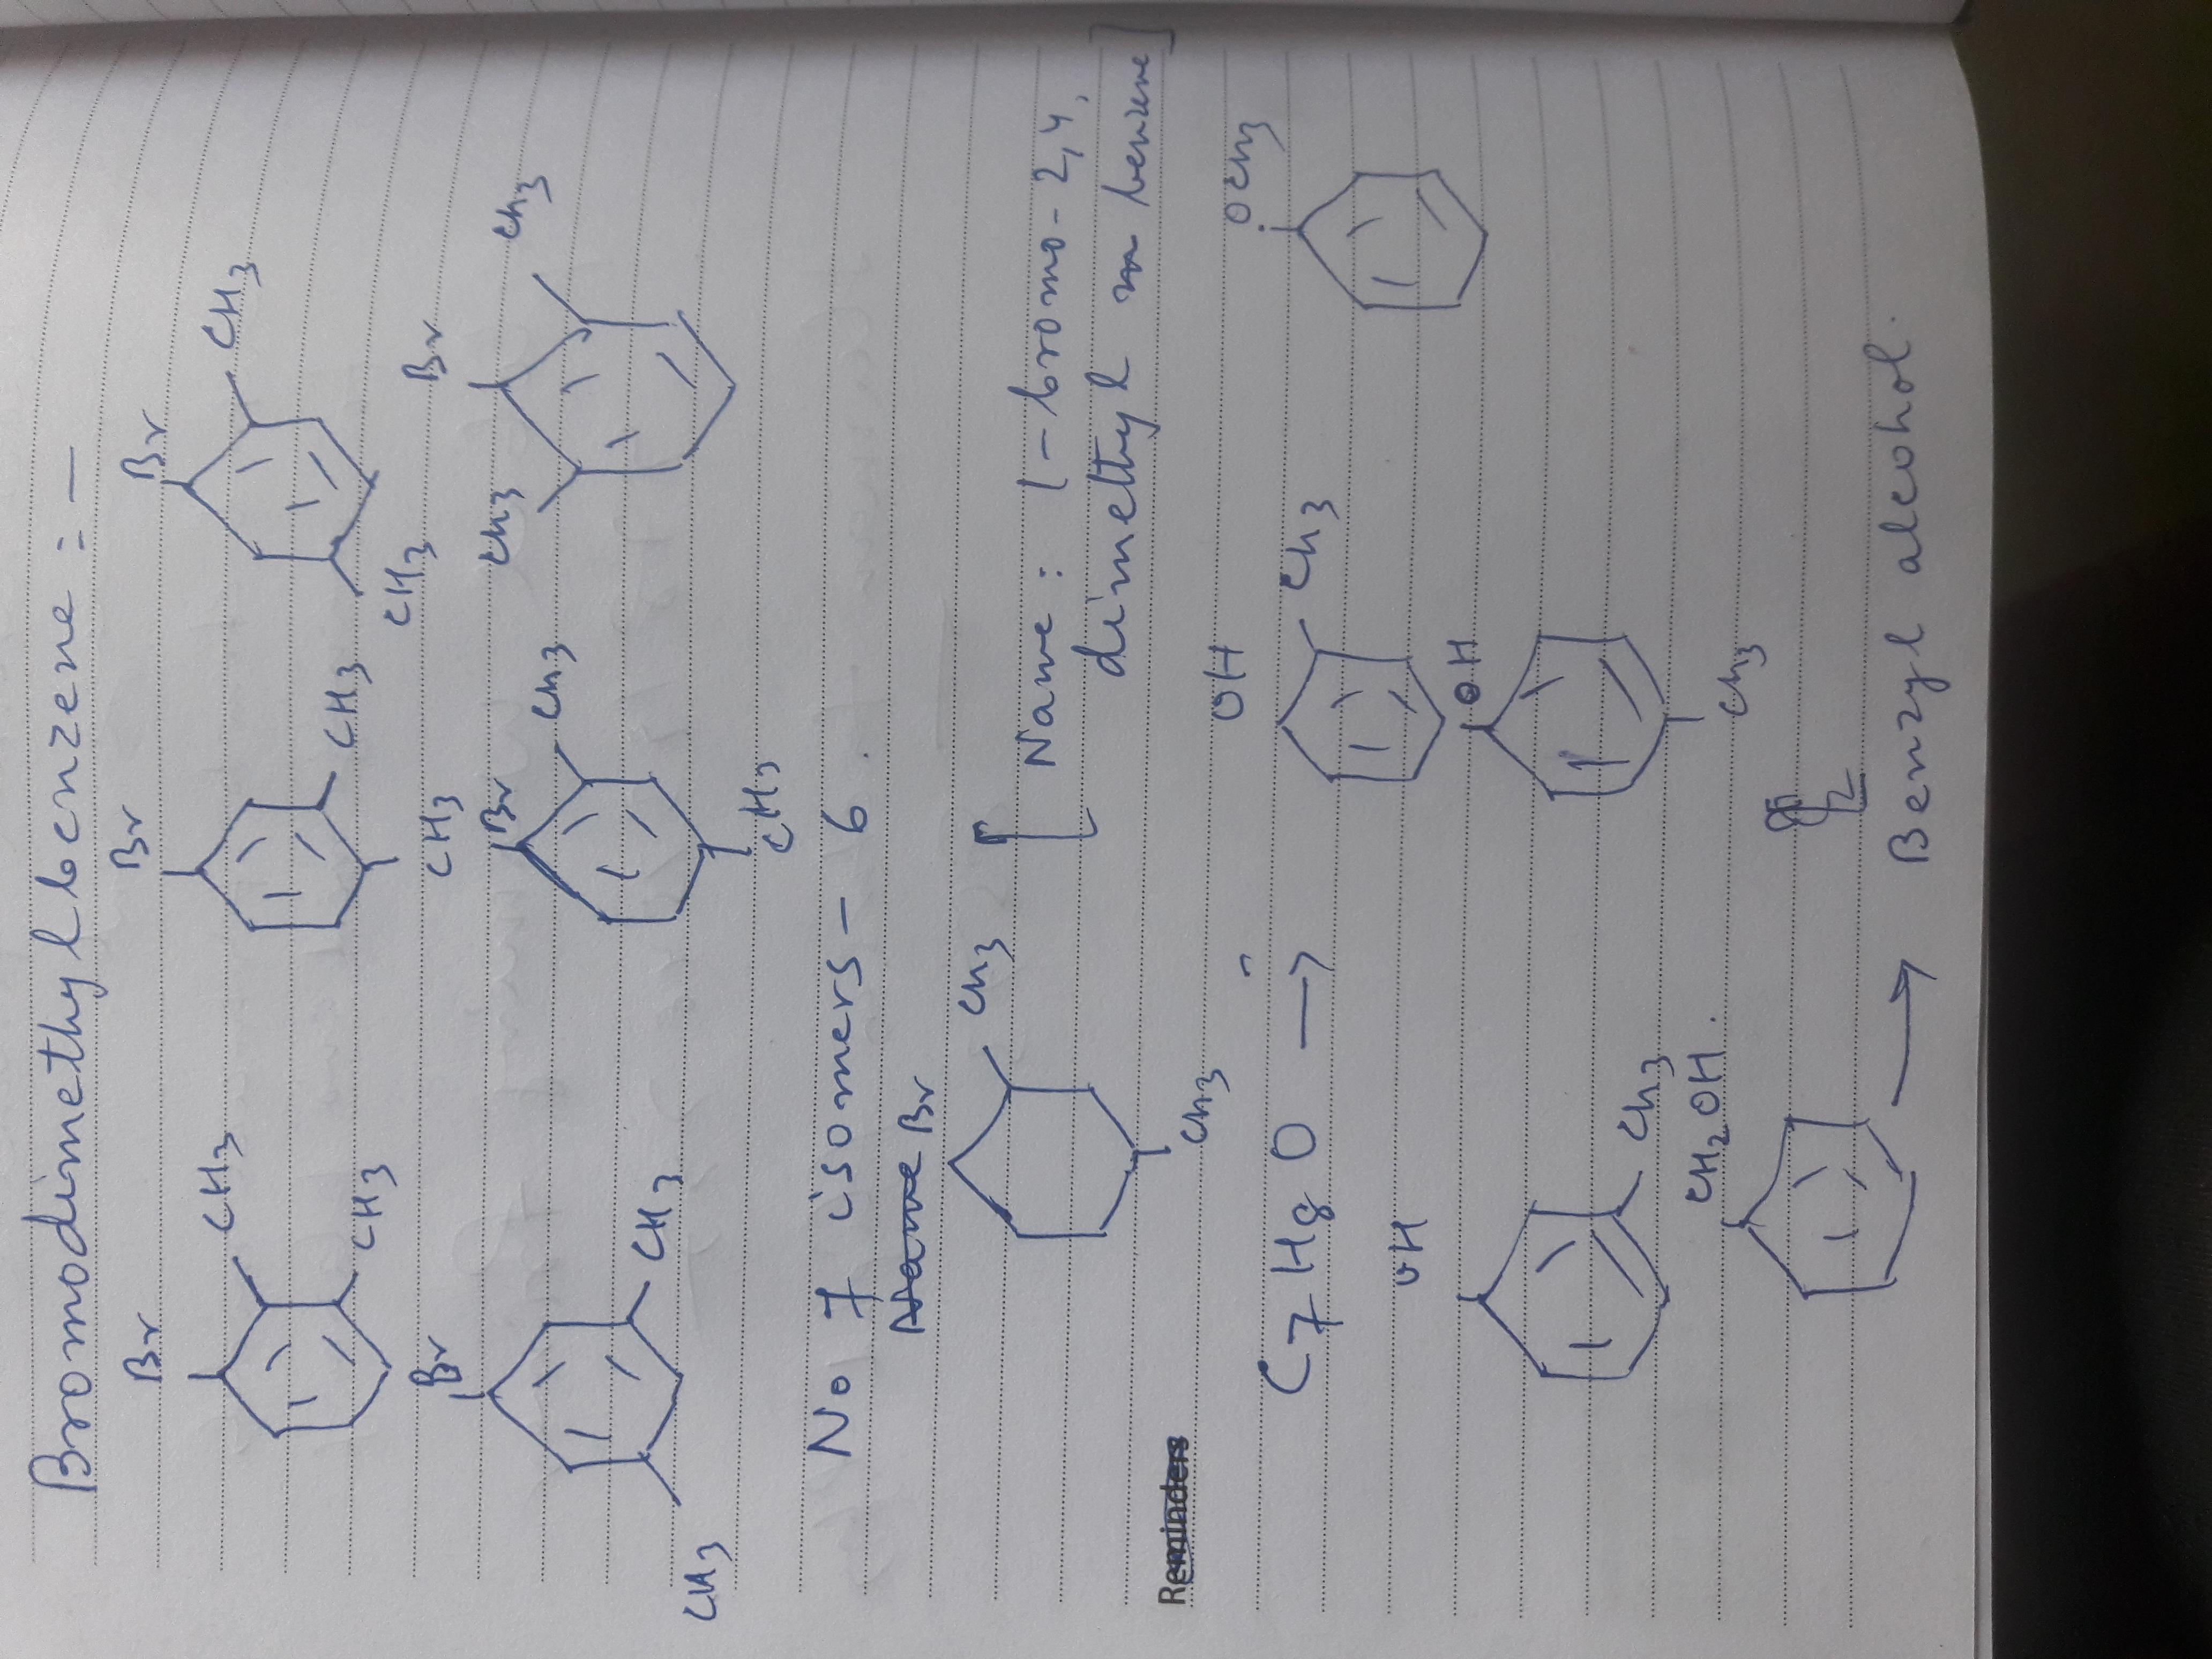 Bromodimethylbenzene :-
Br Br Br
CH3 CH3 CH3
CH3 CH3 CH3
Br Br Br
CH3 CH3 CH3 CH3
CH3 CH3
No 7 isomers - 6
Name Br
CH3
CH3
[Name : 1-bromo-2,4,
dimethyl benzene]
Reminders
C7H8O → OH OCH3
CH3
OH OH
CH3 CH3
CH2OH.
→ Benzyl alcohol.